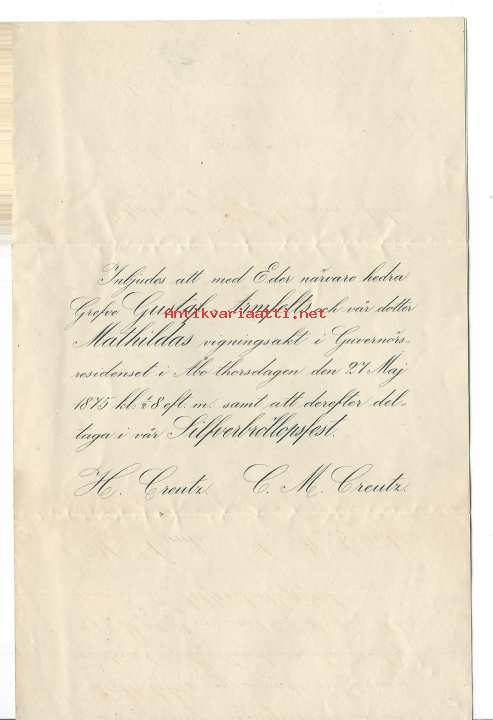 Inbjudes att med Eder närvaro hedra
Grefve Gustaf Armfelts och vår dotter
Antikvariaatti.net
Mathildas vigningsakt i Guvernörs-
residenset i Åbo thorsdagen den 27 Maj
1875 kl. ½ 8 eft. m. samt att derefter del-
taga i vår Silfverbröllopsfest.
H. Creutz. C. M. Creutz.